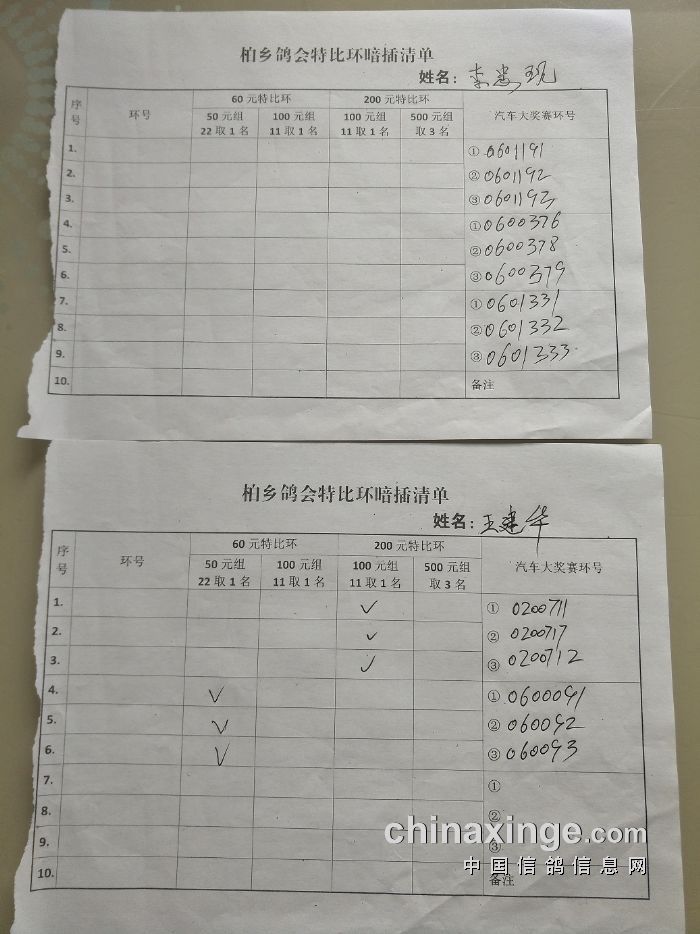 柏乡鸽会特比环暗插清单
姓名：李建现
序号 环号 60 元特比环 200 元特比环 汽车大奖赛环号
50 元组 100 元组 100 元组 500 元组
22 取 1 名 11 取 1 名 11 取 1 名 取 3 名
1. ① 0601191
2. ② 0601192
3. ③ 0601193
4. ① 0600376
5. ② 0600378
6. ③ 0600379
7. ① 0601331
8. ② 0601332
9. ③ 0601333
10. 备注
柏乡鸽会特比环暗插清单
姓名：王建华
序号 环号 60 元特比环 200 元特比环 汽车大奖赛环号
50 元组 100 元组 100 元组 500 元组
22 取 1 名 11 取 1 名 11 取 1 名 取 3 名
1. ✓ ① 0200711
2. ✓ ② 0200717
3. ✓ ③ 0200712
4. ✓ ① 0600091
5. ✓ ② 060092
6. ✓ ③ 060093
7. ①
8. ②
9. ③
10. 备注
chinaxinge.com
中国信鸽信息网